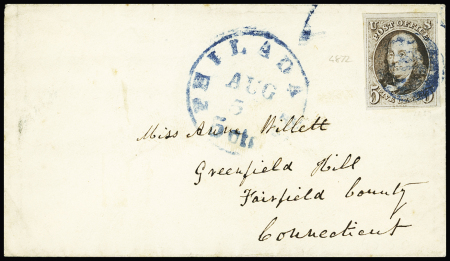 U S
POST OFFICE
5 5
FIVE CENTS
4872
PHILADA
AUG
5
5 cts
Miss Anna Willett
Greenfield Hill
Fairfield County
Connecticut